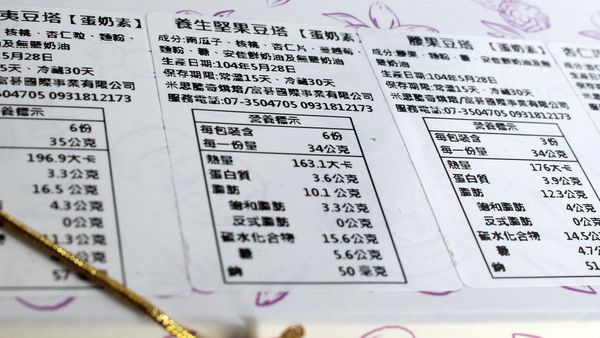 夷豆塔【蛋奶素】
核桃、杏仁粒、麵粉、
及無鹽奶油
5月28日
5天、冷藏30天
/富碁國際事業有限公司
4705 0931812173
6份
35公克
196.9大卡
3.3公克
16.5 公克
4.3公克
0公克
公克
公克
57
養生堅果豆塔 【蛋奶素】
成分:南瓜子、核桃、杏仁片、
麵粉、糖、安佳鮮奶油及無鹽奶油
生產日期:104年5月28日
保存期限:常溫15天、冷藏30天
米思酷奇烘焙/富碁國際事業有限公司
服務電話:07-3504705 0931812173
營養標示
每包裝含 6份
每一份量 34公克
熱量 163.1大卡
蛋白質 3.6公克
脂肪 10.1 公克
飽和脂肪 3.3公克
反式脂肪 0公克
碳水化合物 15.6公克
糖 5.6公克
鈉 50 毫克
腰果豆塔 【蛋奶素】
成分:腰果、麵粉、糖、安佳鮮奶
油及無鹽奶油
生產日期:104年5月28日
保存期限:常溫15天、冷藏30天
米思酷奇烘焙/富碁國際事業有限公司
服務電話:07-3504705 0931812173
營養標示
每包裝含 3份
每一份量 34公克
熱量 176大卡
蛋白質 3.9公克
脂肪 12.3公克
飽和脂肪 4公克
反式脂肪 0公克
碳水化合物 14.5公
糖 4.7公
鈉 51
杏仁
成分